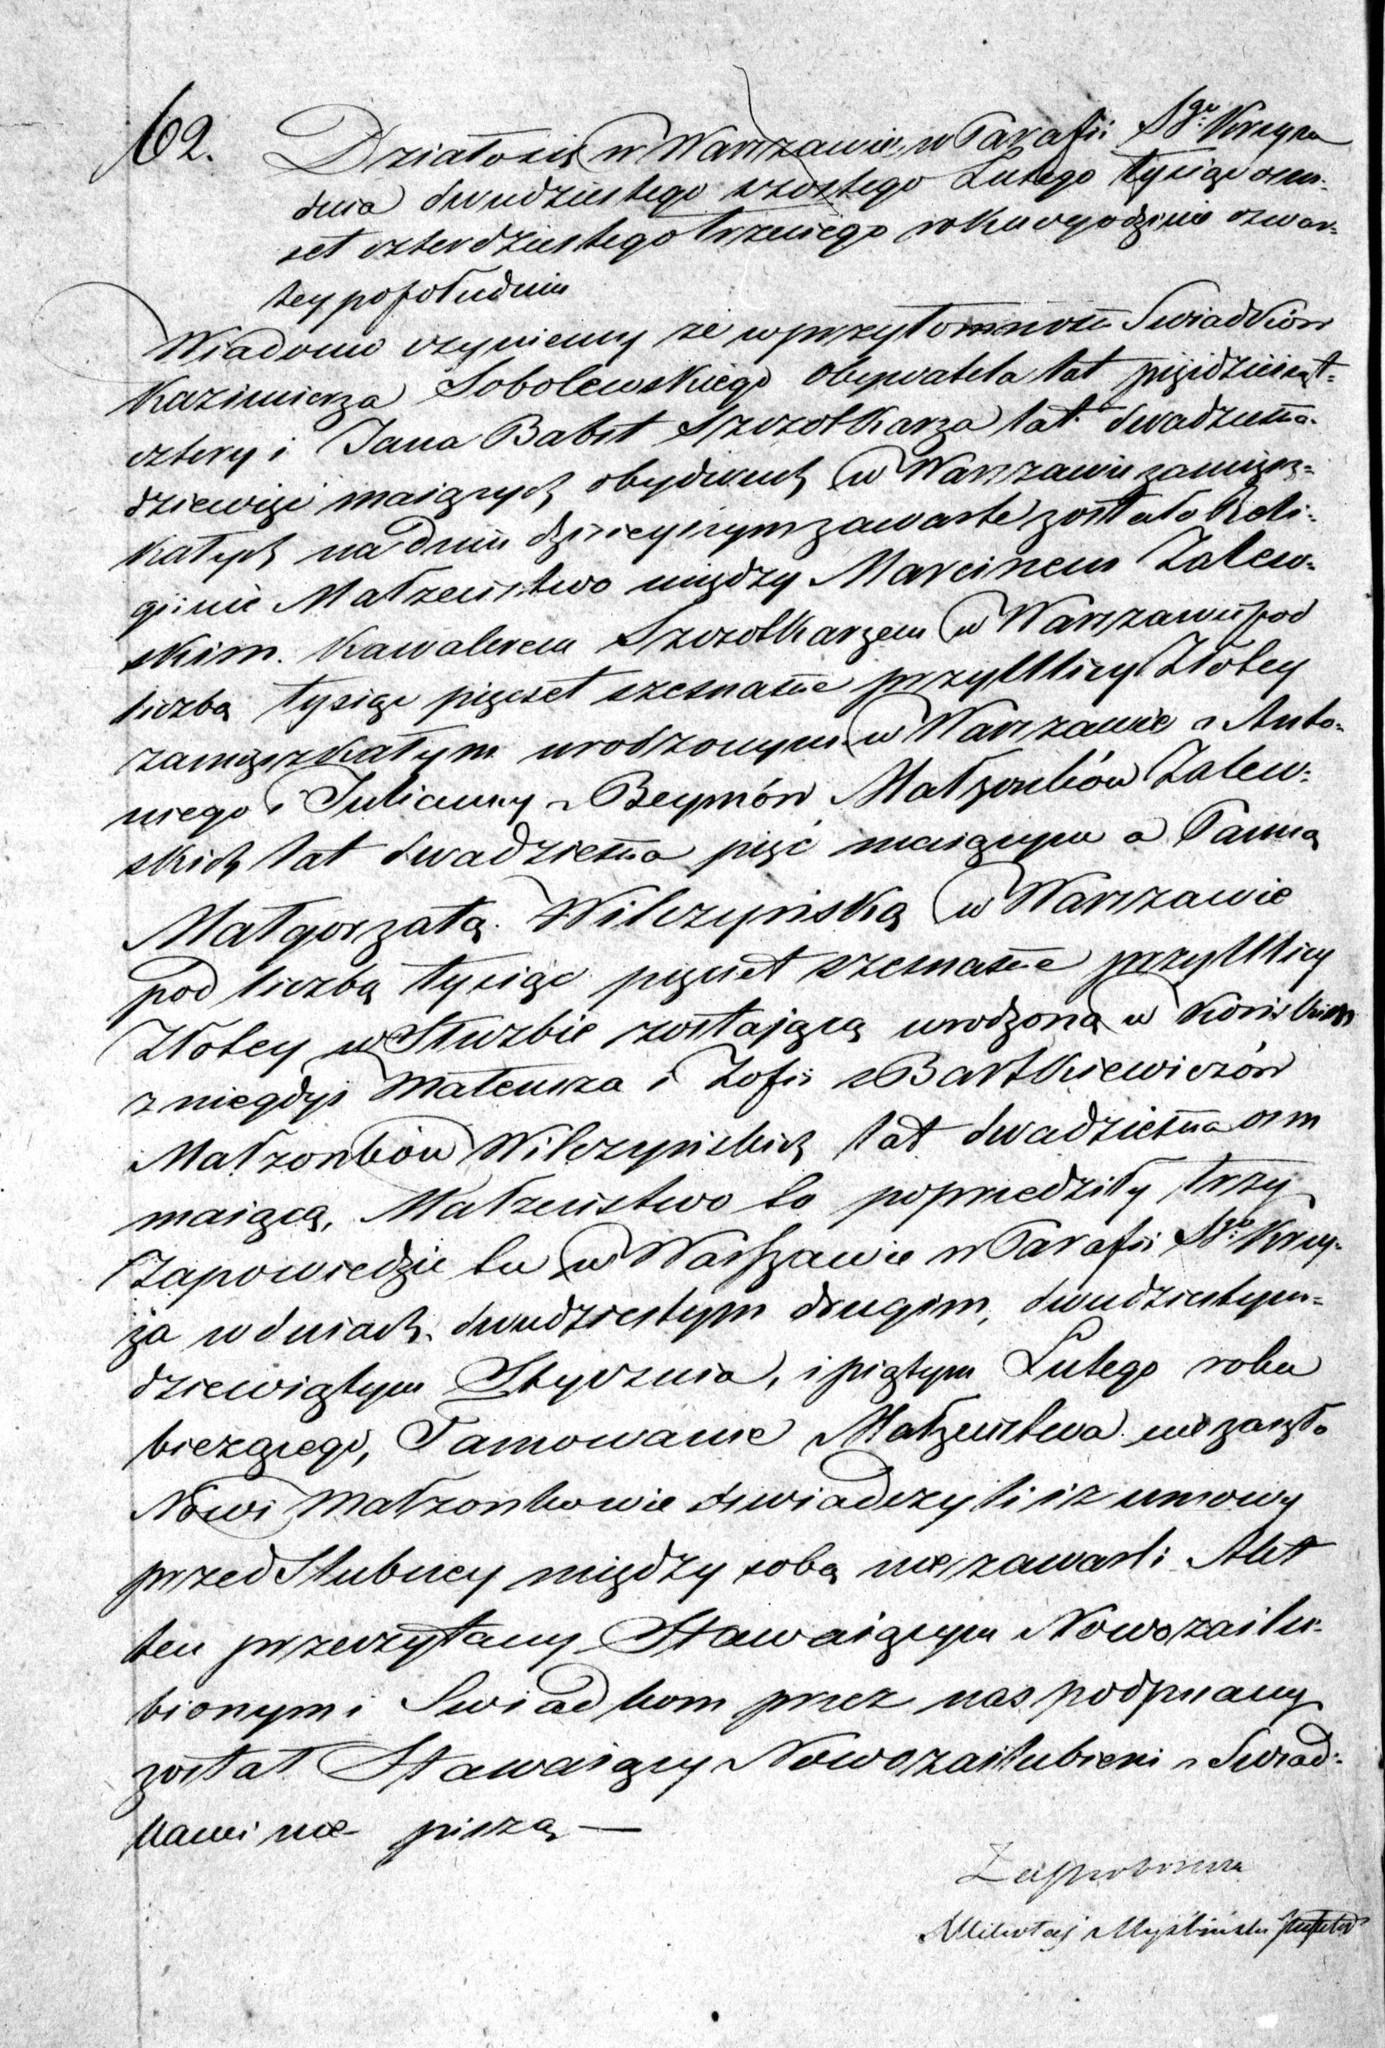 62.
Działo się w Warszawie w Parafii Sgo Krzyża
dnia dwudziestego szostego Lutego tysiąc ośm-
set czterdziestego trzeciego roku o godzinie czwar-
tey popołudniu
Wiadomo czyniemy że w przytomności Swiadków
Kazimierza Sobolewskiego obywatela lat pięćdziesiąt-
cztery i Jana Babst Szczotkarza lat dwadzieścia-
dziewięć maiących obydwuch w Warszawie zamiesz-
kałych na dniu dzisieyszym zawarte zostało Reli-
giine Małżeństwo między Marcinem Zalew-
skim Kawalerem Szczotkarzem w Warszawie pod
liczbą tysiąc pięćset szesnaście przy Ulicy Złotey
zamieszkałym urodzonym w Warszawie z Anto-
niego i Julianny z Beymów Małżonków Zalew-
skich lat dwadzieścia pięć maiącym a Panną
Małgorzatą Wilczyńską w Warszawie
pod liczbą tysiąc pięćset szesnaście przy Ulicy
Złotey w Służbie zostającą urodzoną w
z niegdyś Mateusza i Zofii z Bartkiewiczów
Małżonków Wilczyńskich lat dwadzieścia ośm
maiącą, Małżeństwo to poprzedziły trzy
Zapowiedzie tu w Warszawie w Parafii Sgo Krzy-
ża w dniach dwudziestym drugim, dwudziestym-
dziewiątym Stycznia, i piątym Lutego roku
bieżącego, Tamowanie Małżeństwa nie zaszło
Nowi Małżonkowie oświadczyli iż umowy
przed Slubney między sobą nie zawarli Akt
ten przeczytany Stawaiącym Nowozaślu-
bionym i Swiadkom przez nas podpisany
został Stawaiący Nowozaślubieni z Swiad-
kami nie piszą —
Za Proboszcza
Mikołaj Myśliński